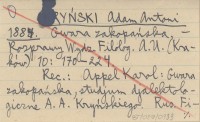 O ZYŃSKI Adam Antoni
1887. Gwara zakopańska, -
Rozprawy Wydz. Filolog. A.U. (Kra-
ków) 10: 170-224.
Rec.: Appel Karol: Gwara
zakopańska, studyum dyalektolo-
giczne A. A. Kryńskiego. Rus. Fi-